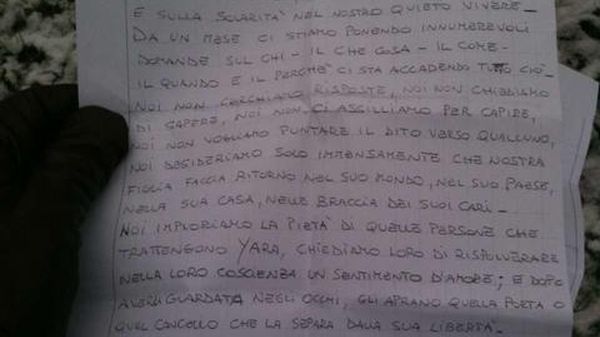 E SULLA SOLARITÀ NEL NOSTRO QUIETO VIVERE_
DA UN MESE CI STIAMO PONENDO INNUMEREVOLI
DOMANDE SUL CHI - IL CHE COSA - IL COME -
IL QUANDO E IL PERCHÉ CI STA ACCADENDO TUTTO CIÒ -
NOI NON CERCHIAMO RISPOSTE, NOI NON CHIEDIAMO
DI SAPERE, NOI NON CI ASSILLIAMO PER CAPIRE,
NOI NON VOGLIAMO PUNTARE IL DITO VERSO QUALCUNO,
NOI DESIDERIAMO SOLO IMMENSAMENTE CHE NOSTRA
FIGLIA FACCIA RITORNO NEL SUO MONDO, NEL SUO PAESE,
NELLA SUA CASA, NELLE BRACCIA DEI SUOI CARI -
NOI IMPLORIAMO LA PIETÀ DI QUELLE PERSONE CHE
TRATTENGONO YARA, CHIEDIAMO LORO DI RISPOLVERARE
NELLA LORO COSCIENZA UN SENTIMENTO D'AMORE; E DOPO
AVERLA GUARDATA NEGLI OCCHI, GLI APRANO QUELLA PORTA O
QUEL CANCELLO CHE LA SEPARA DALLA SUA LIBERTÀ -